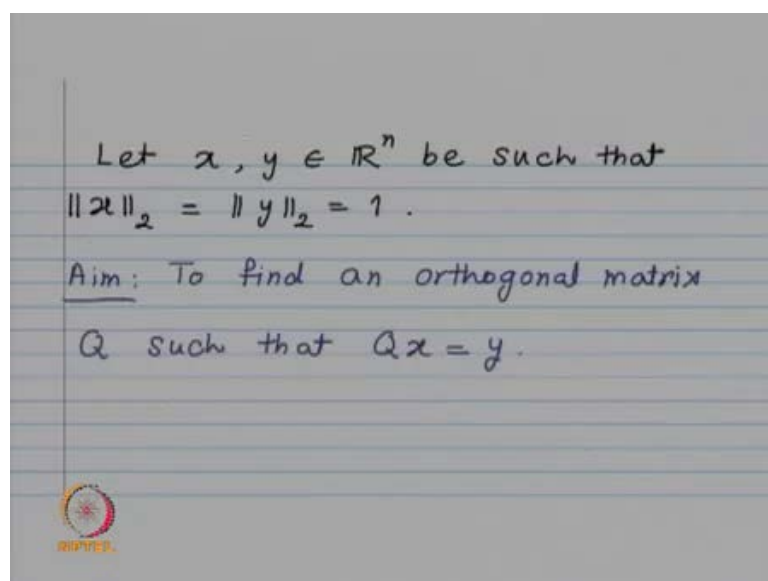 Let x, y ∈ ℝⁿ be such that
‖x‖₂ = ‖y‖₂ = 1.
Aim: To find an orthogonal matrix
Q such that Qx = y.
NPTEL